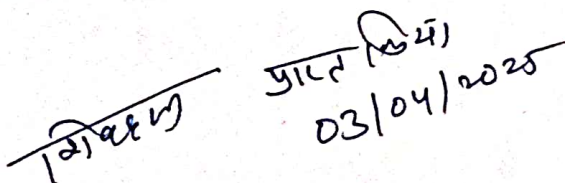 प्राप्त किया
03/04/2025